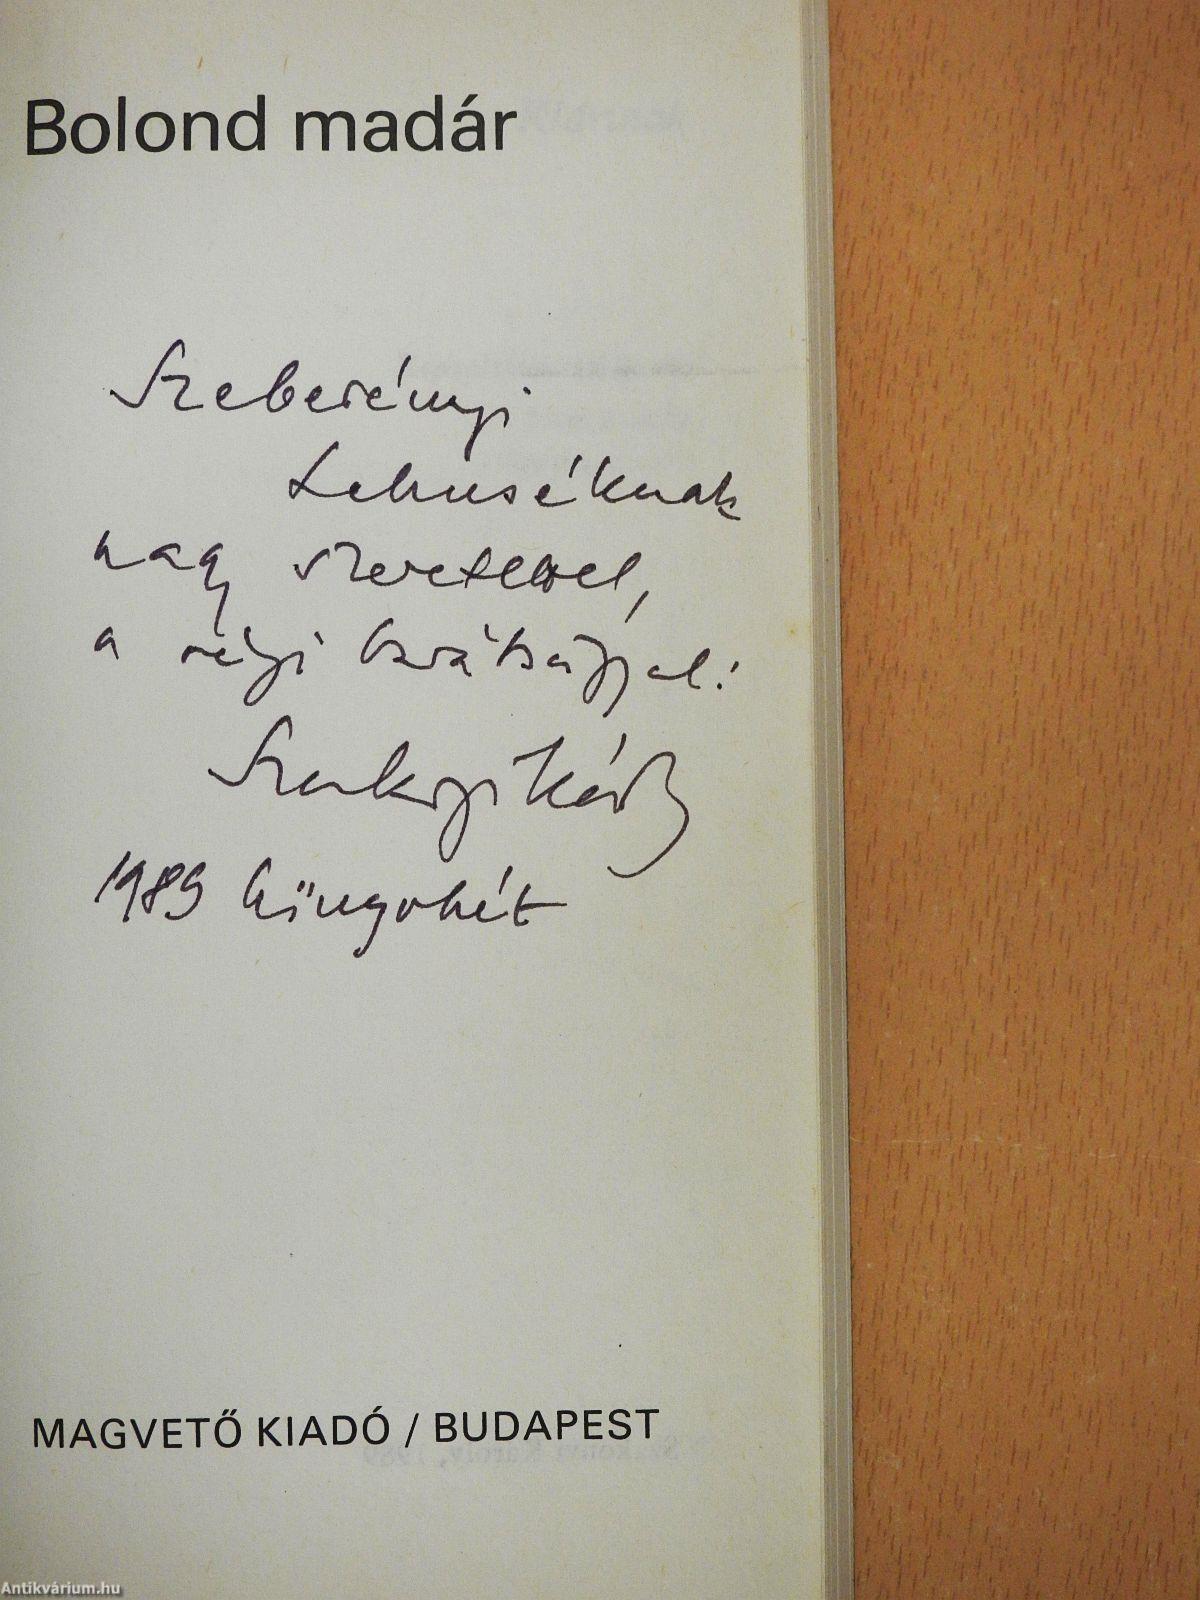 Bolond madár
Szeberényi
Lehuséknak
nagy szeretettel,
a régi barátsággal:
Szakonyi Károly
1989 könyvhét
MAGVETŐ KIADÓ / BUDAPEST
Szakonyi Károly, 1989
Antikvárium.hu